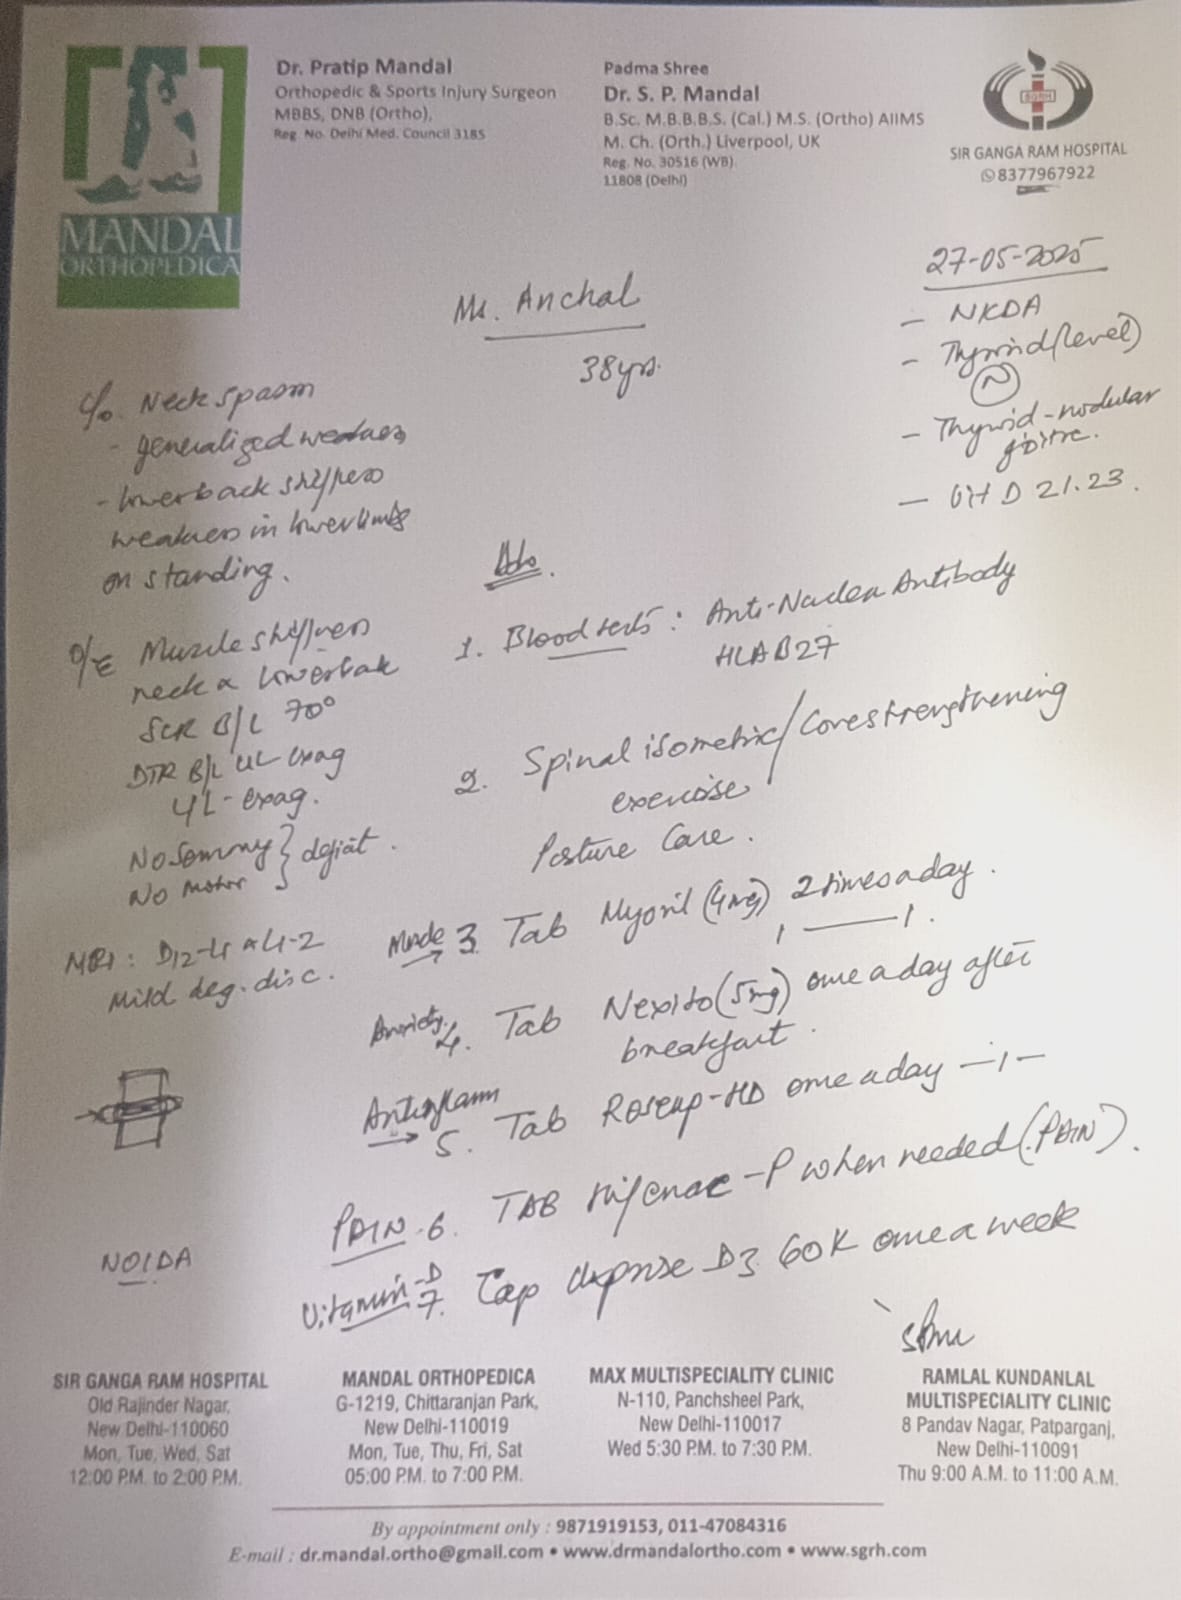 Dr. Pratip Mandal
Orthopedic & Sports Injury Surgeon
MBBS, DNB (Ortho),
Reg. No. Delhi Med. Council 3185
Padma Shree
Dr. S. P. Mandal
B.Sc. M.B.B.B.S. (Cal.) M.S. (Ortho) AIIMS
M. Ch. (Orth.) Liverpool, UK
Reg. No. 30516 (WB)
11808 (Delhi)
SGRH
SIR GANGA RAM HOSPITAL
8377967922
MANDAL
ORTHOPEDICA
27-05-2025
Ms. Anchal
38yrs.
- NKDA
- Thyroid (level)
N
- Thyroid - nodular
goitre.
- Vit D 21.23.
c/o. Neck spasm
- generalized weakness
- lower back stiffness
weakness in lower limbs
on standing.
O/E Muscle stiffness
neck & lower back
SLR B/L 70°
DTR B/L UL exag
LL - exag.
No sensory } deficit.
No motor
MRI: D12-L1 & L1-2
Mild deg. disc.
NOIDA
Adv.
1. Blood tests: Anti-Nuclear Antibody
HLA B27
2. Spinal isometric / Core strengthening
exercise
Posture Care.
3. Tab Myoril (4mg) 2 times a day.
1 — 1.
Anxiety 4. Tab Nexito (5mg) once a day after
breakfast.
5. Tab -HD once a day —1—
PAIN. 6. TAB -P when needed (PAIN).
Vitamin-D 7. Cap D3 60K once a week
SIR GANGA RAM HOSPITAL
Old Rajinder Nagar,
New Delhi-110060
Mon, Tue, Wed, Sat
12:00 P.M. to 2:00 P.M.
MANDAL ORTHOPEDICA
G-1219, Chittaranjan Park,
New Delhi-110019
Mon, Tue, Thu, Fri, Sat
05:00 P.M. to 7:00 P.M.
MAX MULTISPECIALITY CLINIC
N-110, Panchsheel Park,
New Delhi-110017
Wed 5:30 P.M. to 7:30 P.M.
RAMLAL KUNDANLAL
MULTISPECIALITY CLINIC
8 Pandav Nagar, Patparganj,
New Delhi-110091
Thu 9:00 A.M. to 11:00 A.M.
By appointment only : 9871919153, 011-47084316
E-mail : dr.mandal.ortho@gmail.com • www.drmandalortho.com • www.sgrh.com